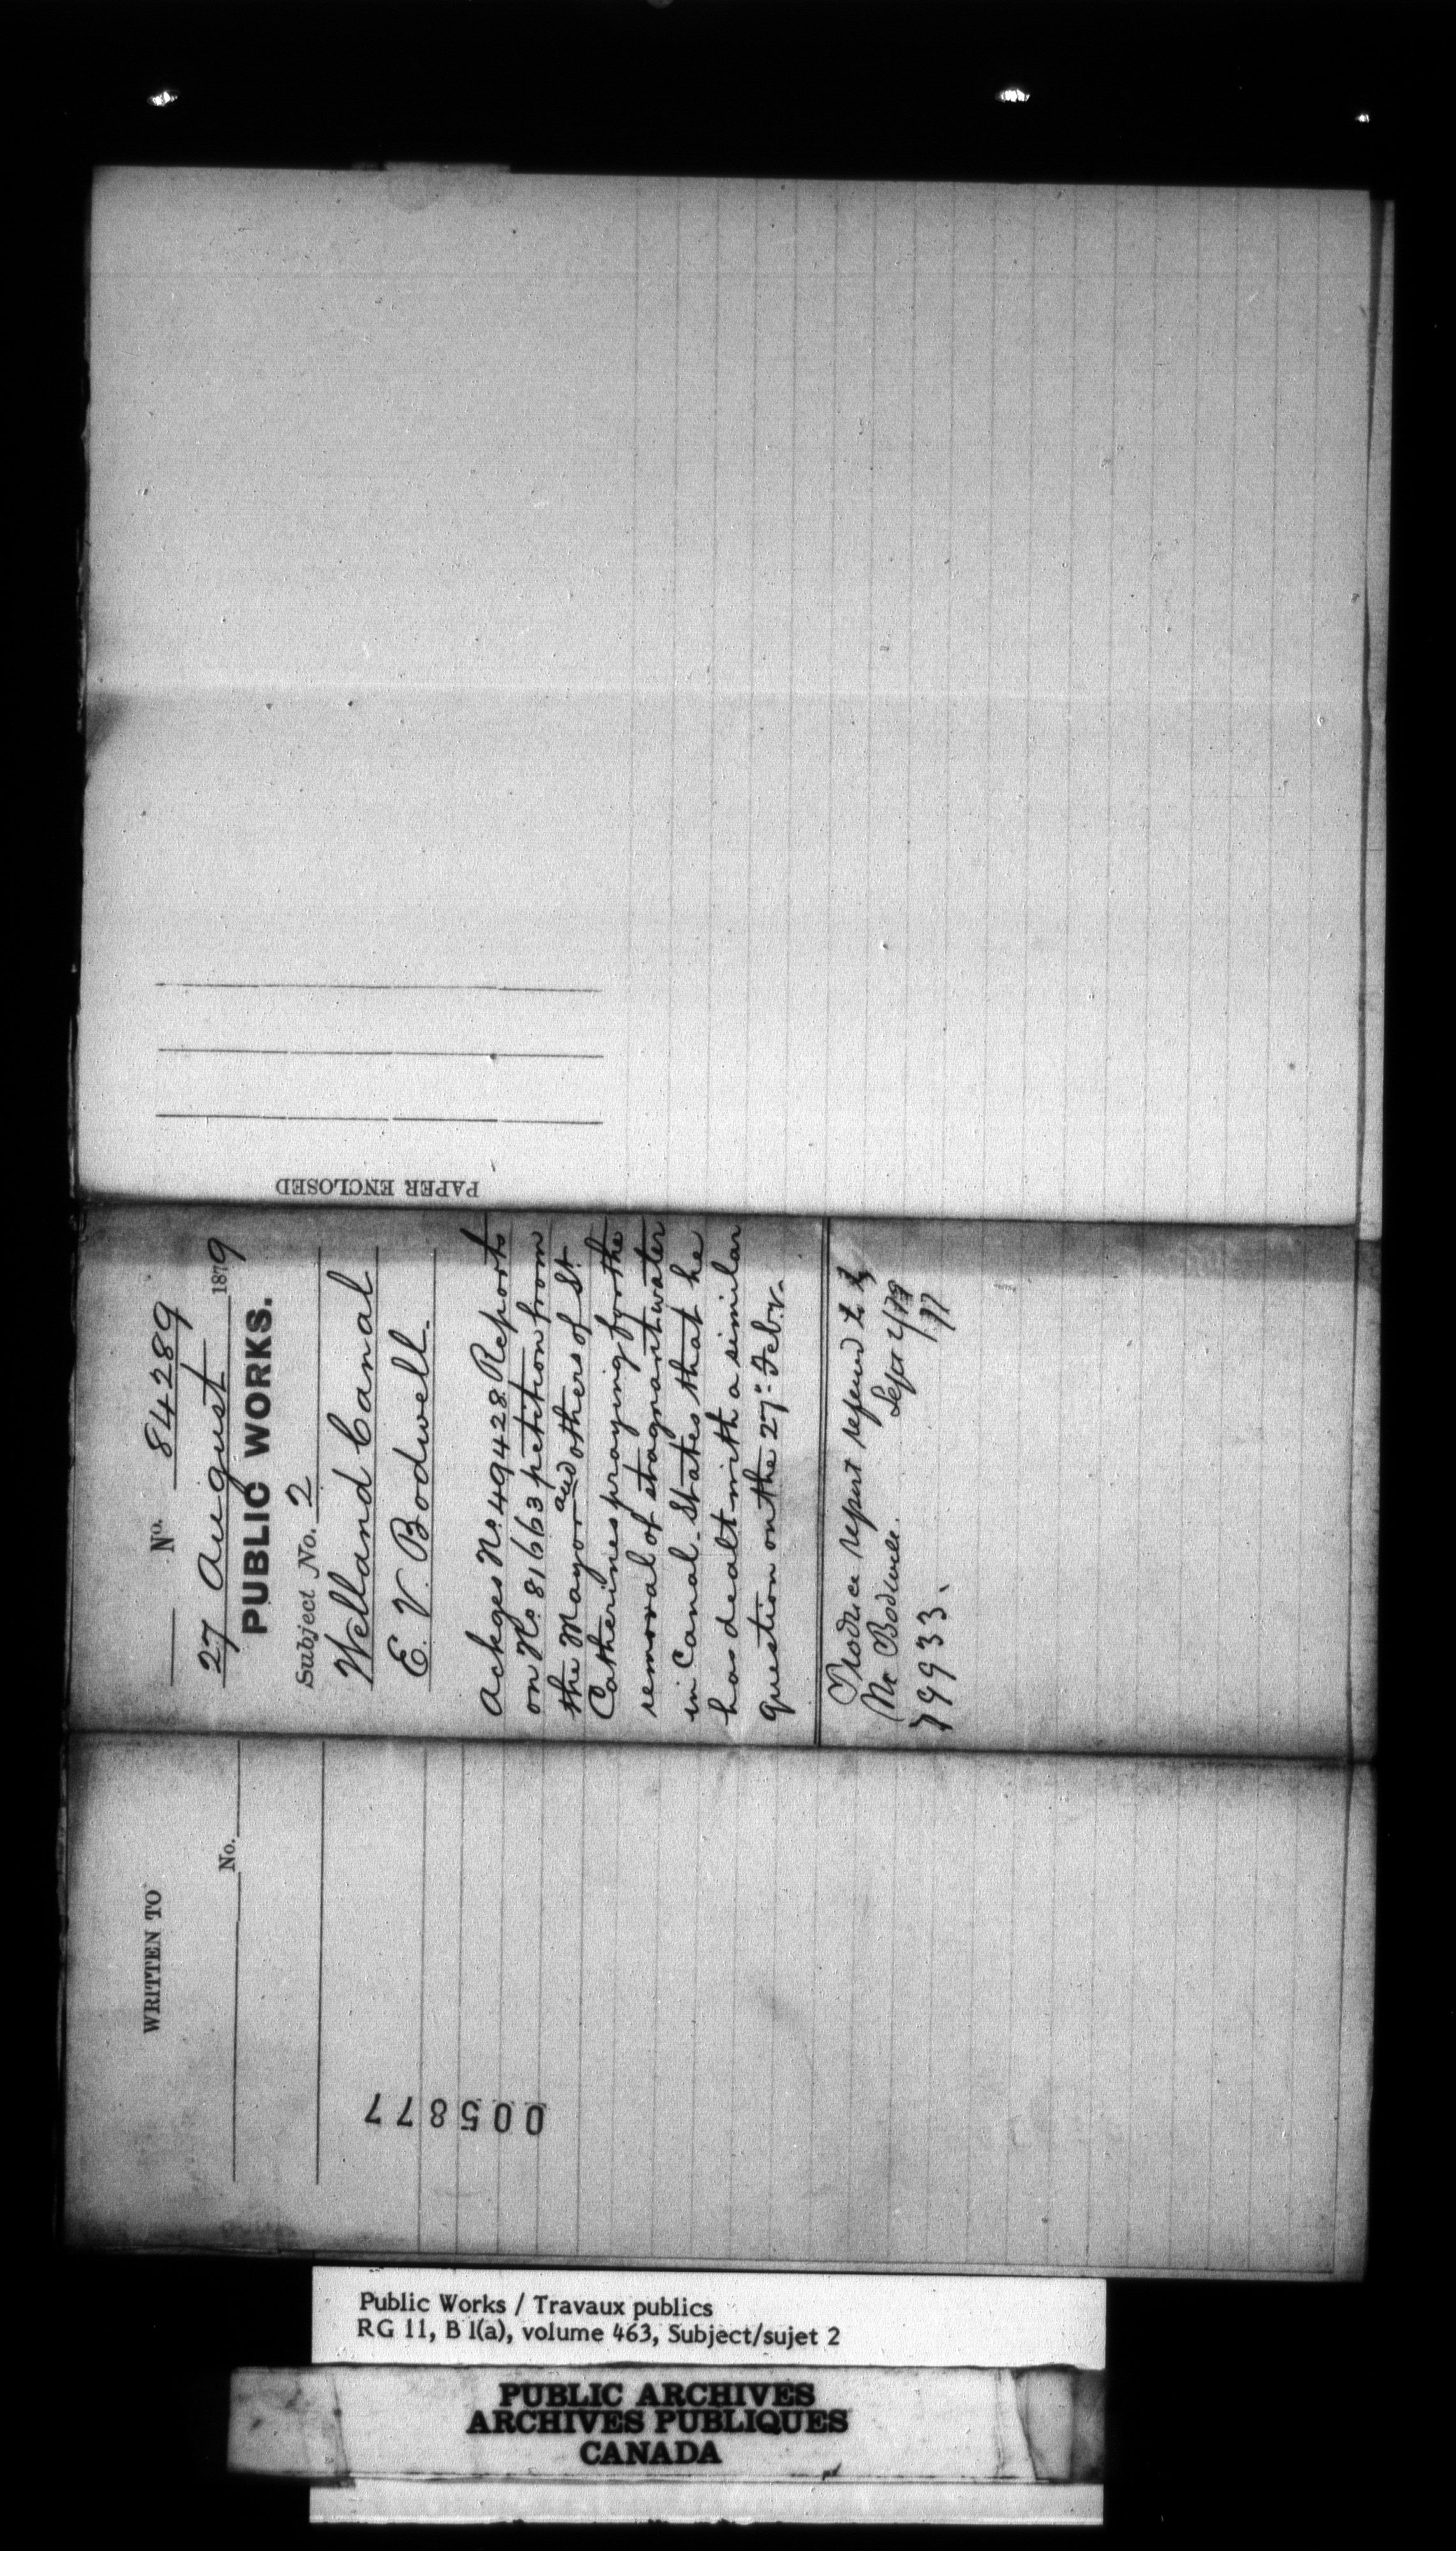 No. 84289
27 August 1879
PUBLIC WORKS.
Subject No. 2
Welland Canal
E. V. Bodwell.
Ackges No. 49428. Reports
on No. 81663 petition from
the Mayor and others of St.
Catherines praying for the
removal of stagnant water
in Canal. States that he
has dealt with a similar
question on the 27th Febr.
Produce report refered to by
Mr Bodwell. Sept 2/79
79933.
PAPER ENCLOSED
WRITTEN TO
No.
005877
Public Works / Travaux publics
RG 11, B 1(a), volume 463, Subject/sujet 2
PUBLIC ARCHIVES
ARCHIVES PUBLIQUES
CANADA